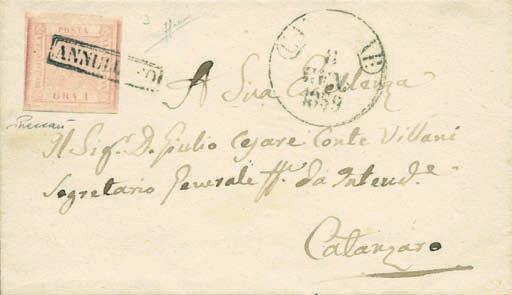 POSTA
ANNULLATO
GRA 1
1859
A Sua Eccellenza
Il Sig.r D. Giulio Cesare Conte Villani
Segretario Generale ff. da Intend.e
Catanzaro